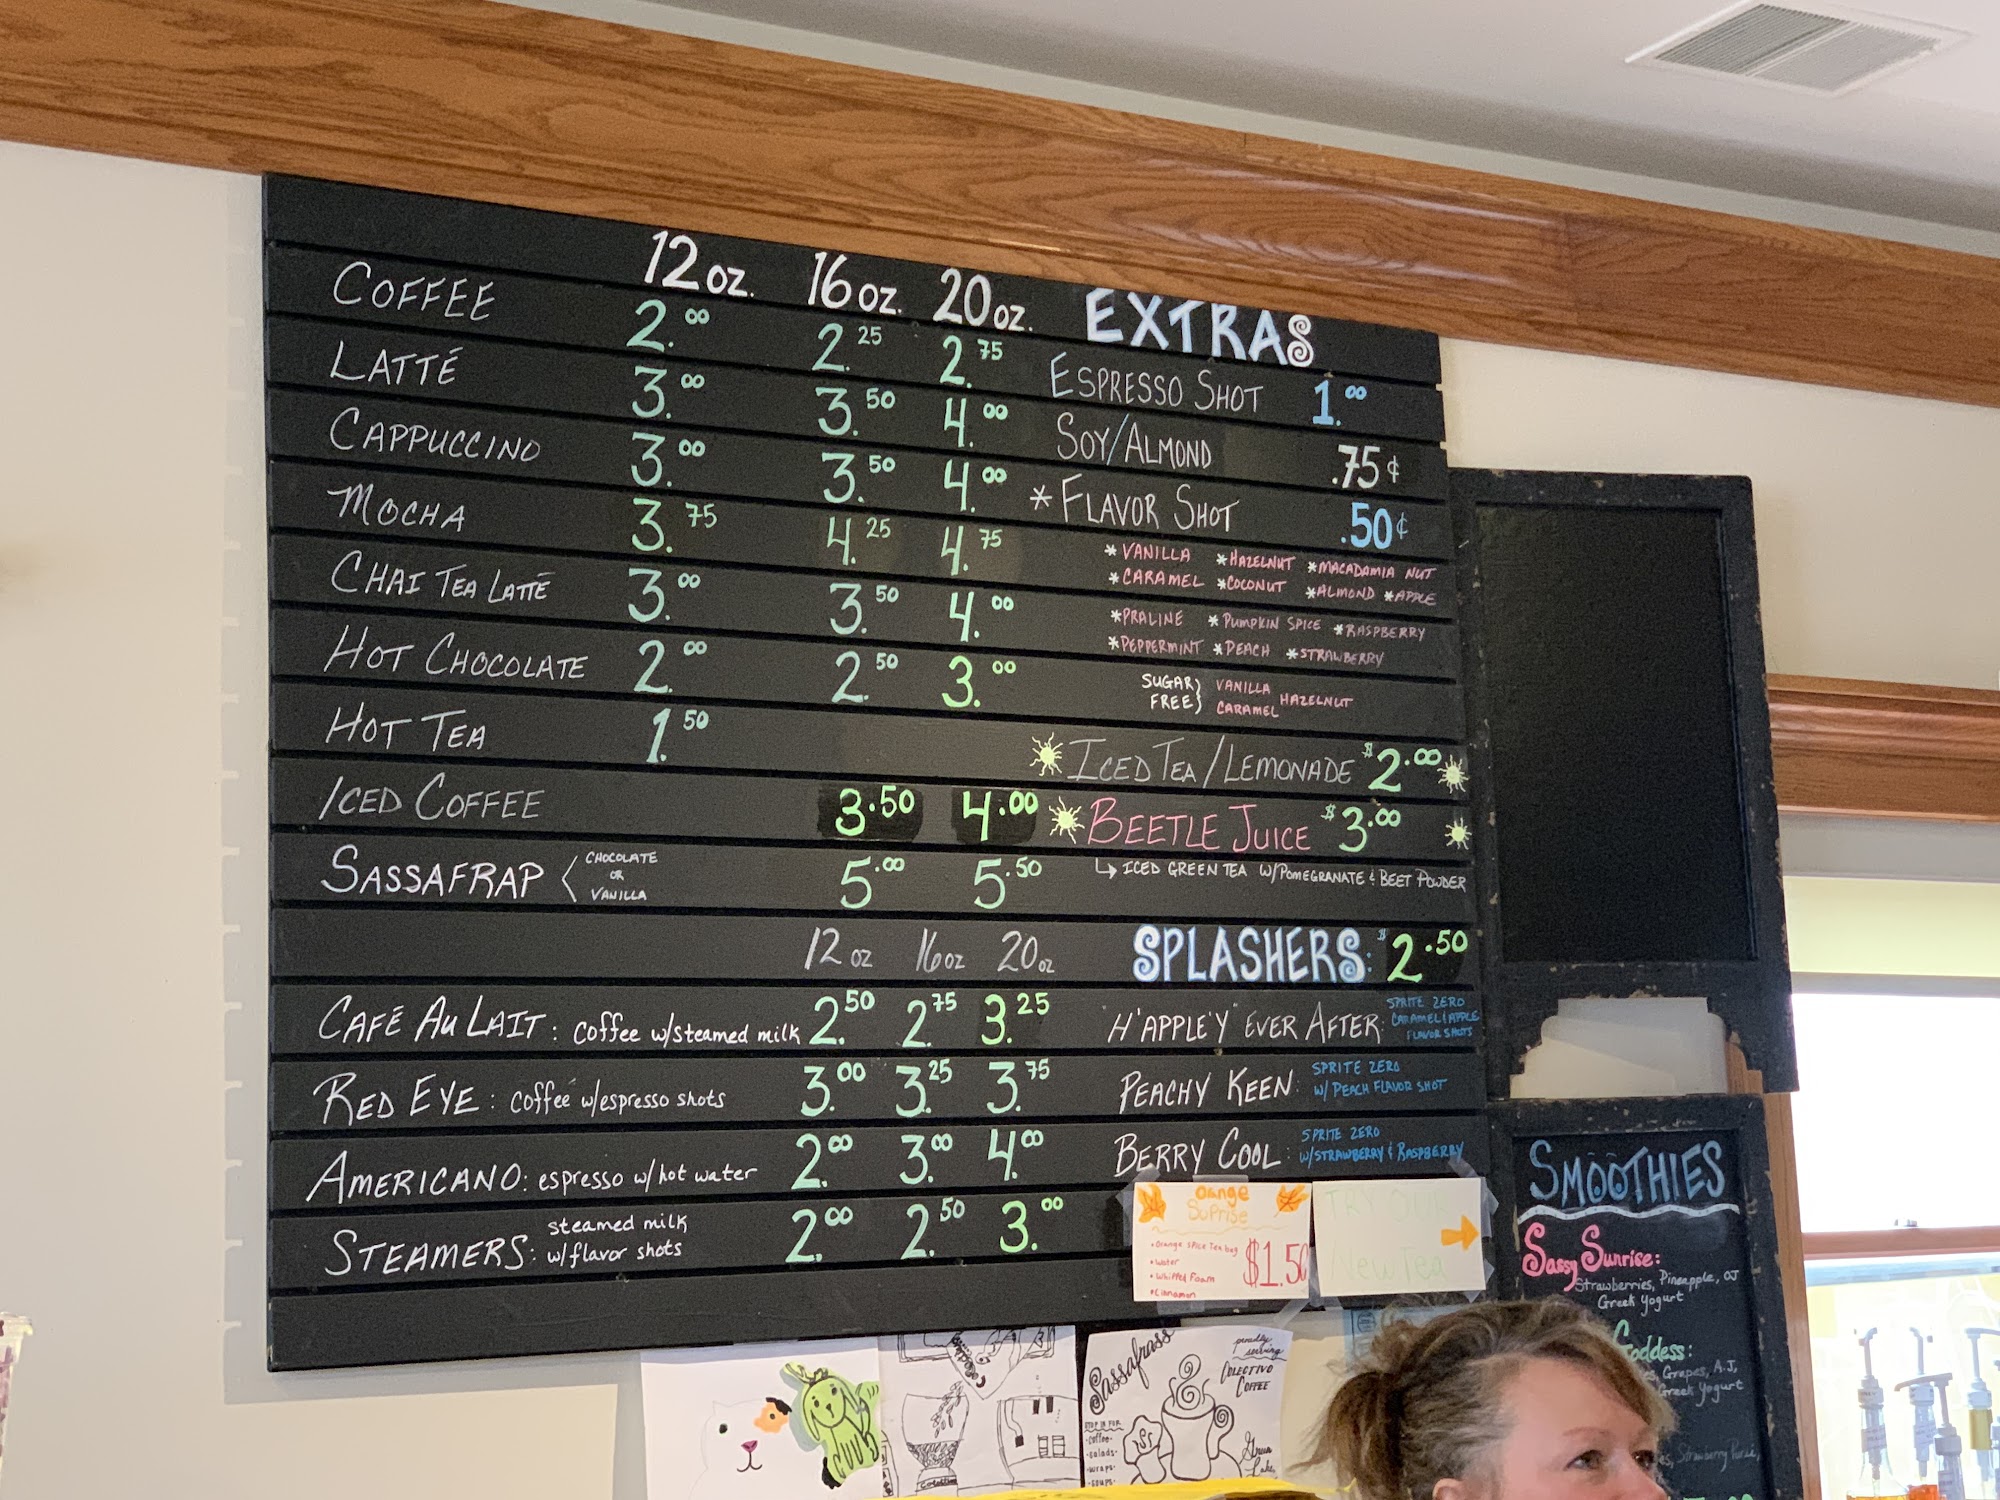 12 oz. 16 oz. 20 oz.
COFFEE 2.00 2.25 2.75
LATTÉ 3.00 3.50 4.00
CAPPUCCINO 3.00 3.50 4.00
MOCHA 3.75 4.25 4.75
CHAI TEA LATTÉ 3.00 3.50 4.00
HOT CHOCOLATE 2.00 2.50 3.00
HOT TEA 1.50
ICED COFFEE 3.50 4.00
SASSAFRAP < CHOCOLATE
OR
VANILLA
5.00 5.50
12 oz 16 oz 20 oz
CAFÉ AU LAIT: coffee w/steamed milk 2.50 2.75 3.25
RED EYE: coffee w/espresso shots 3.00 3.25 3.75
AMERICANO: espresso w/hot water 2.00 3.00 4.00
STEAMERS: steamed milk
w/flavor shots 2.00 2.50 3.00
EXTRAS
ESPRESSO SHOT 1.00
SOY/ALMOND .75¢
*FLAVOR SHOT .50¢
*VANILLA *HAZELNUT *MACADAMIA NUT
*CARAMEL *COCONUT *ALMOND *APPLE
*PRALINE *PUMPKIN SPICE *RASPBERRY
*PEPPERMINT *PEACH *STRAWBERRY
SUGAR FREE} VANILLA HAZELNUT
CARAMEL
ICED TEA/LEMONADE $2.00
BEETLE JUICE $3.00
↳ ICED GREEN TEA W/POMEGRANATE & BEET POWDER
SPLASHERS: $2.50
"H'APPLE'Y" EVER AFTER: SPRITE ZERO
CARAMEL & APPLE
FLAVOR SHOTS
PEACHY KEEN: SPRITE ZERO
W/ PEACH FLAVOR SHOT
BERRY COOL: SPRITE ZERO
W/STRAWBERRY & RASPBERRY
Orange
Suprise
• Orange Spice Tea bag
• Water
• Whipped Foam
• Cinnamon
$1.50
TRY OUR
New Tea
SMOOTHIES
Sassy Sunrise:
Strawberries, Pineapple, OJ
Greek Yogurt
Goddess:
Grapes, A.J,
Greek Yogurt
Strawberry
Sassafrass
proudly
serving
COLECTIVO
COFFEE
STOP IN FOR
·coffee·
·salads·
·wraps·
·soups·
Green
Lake